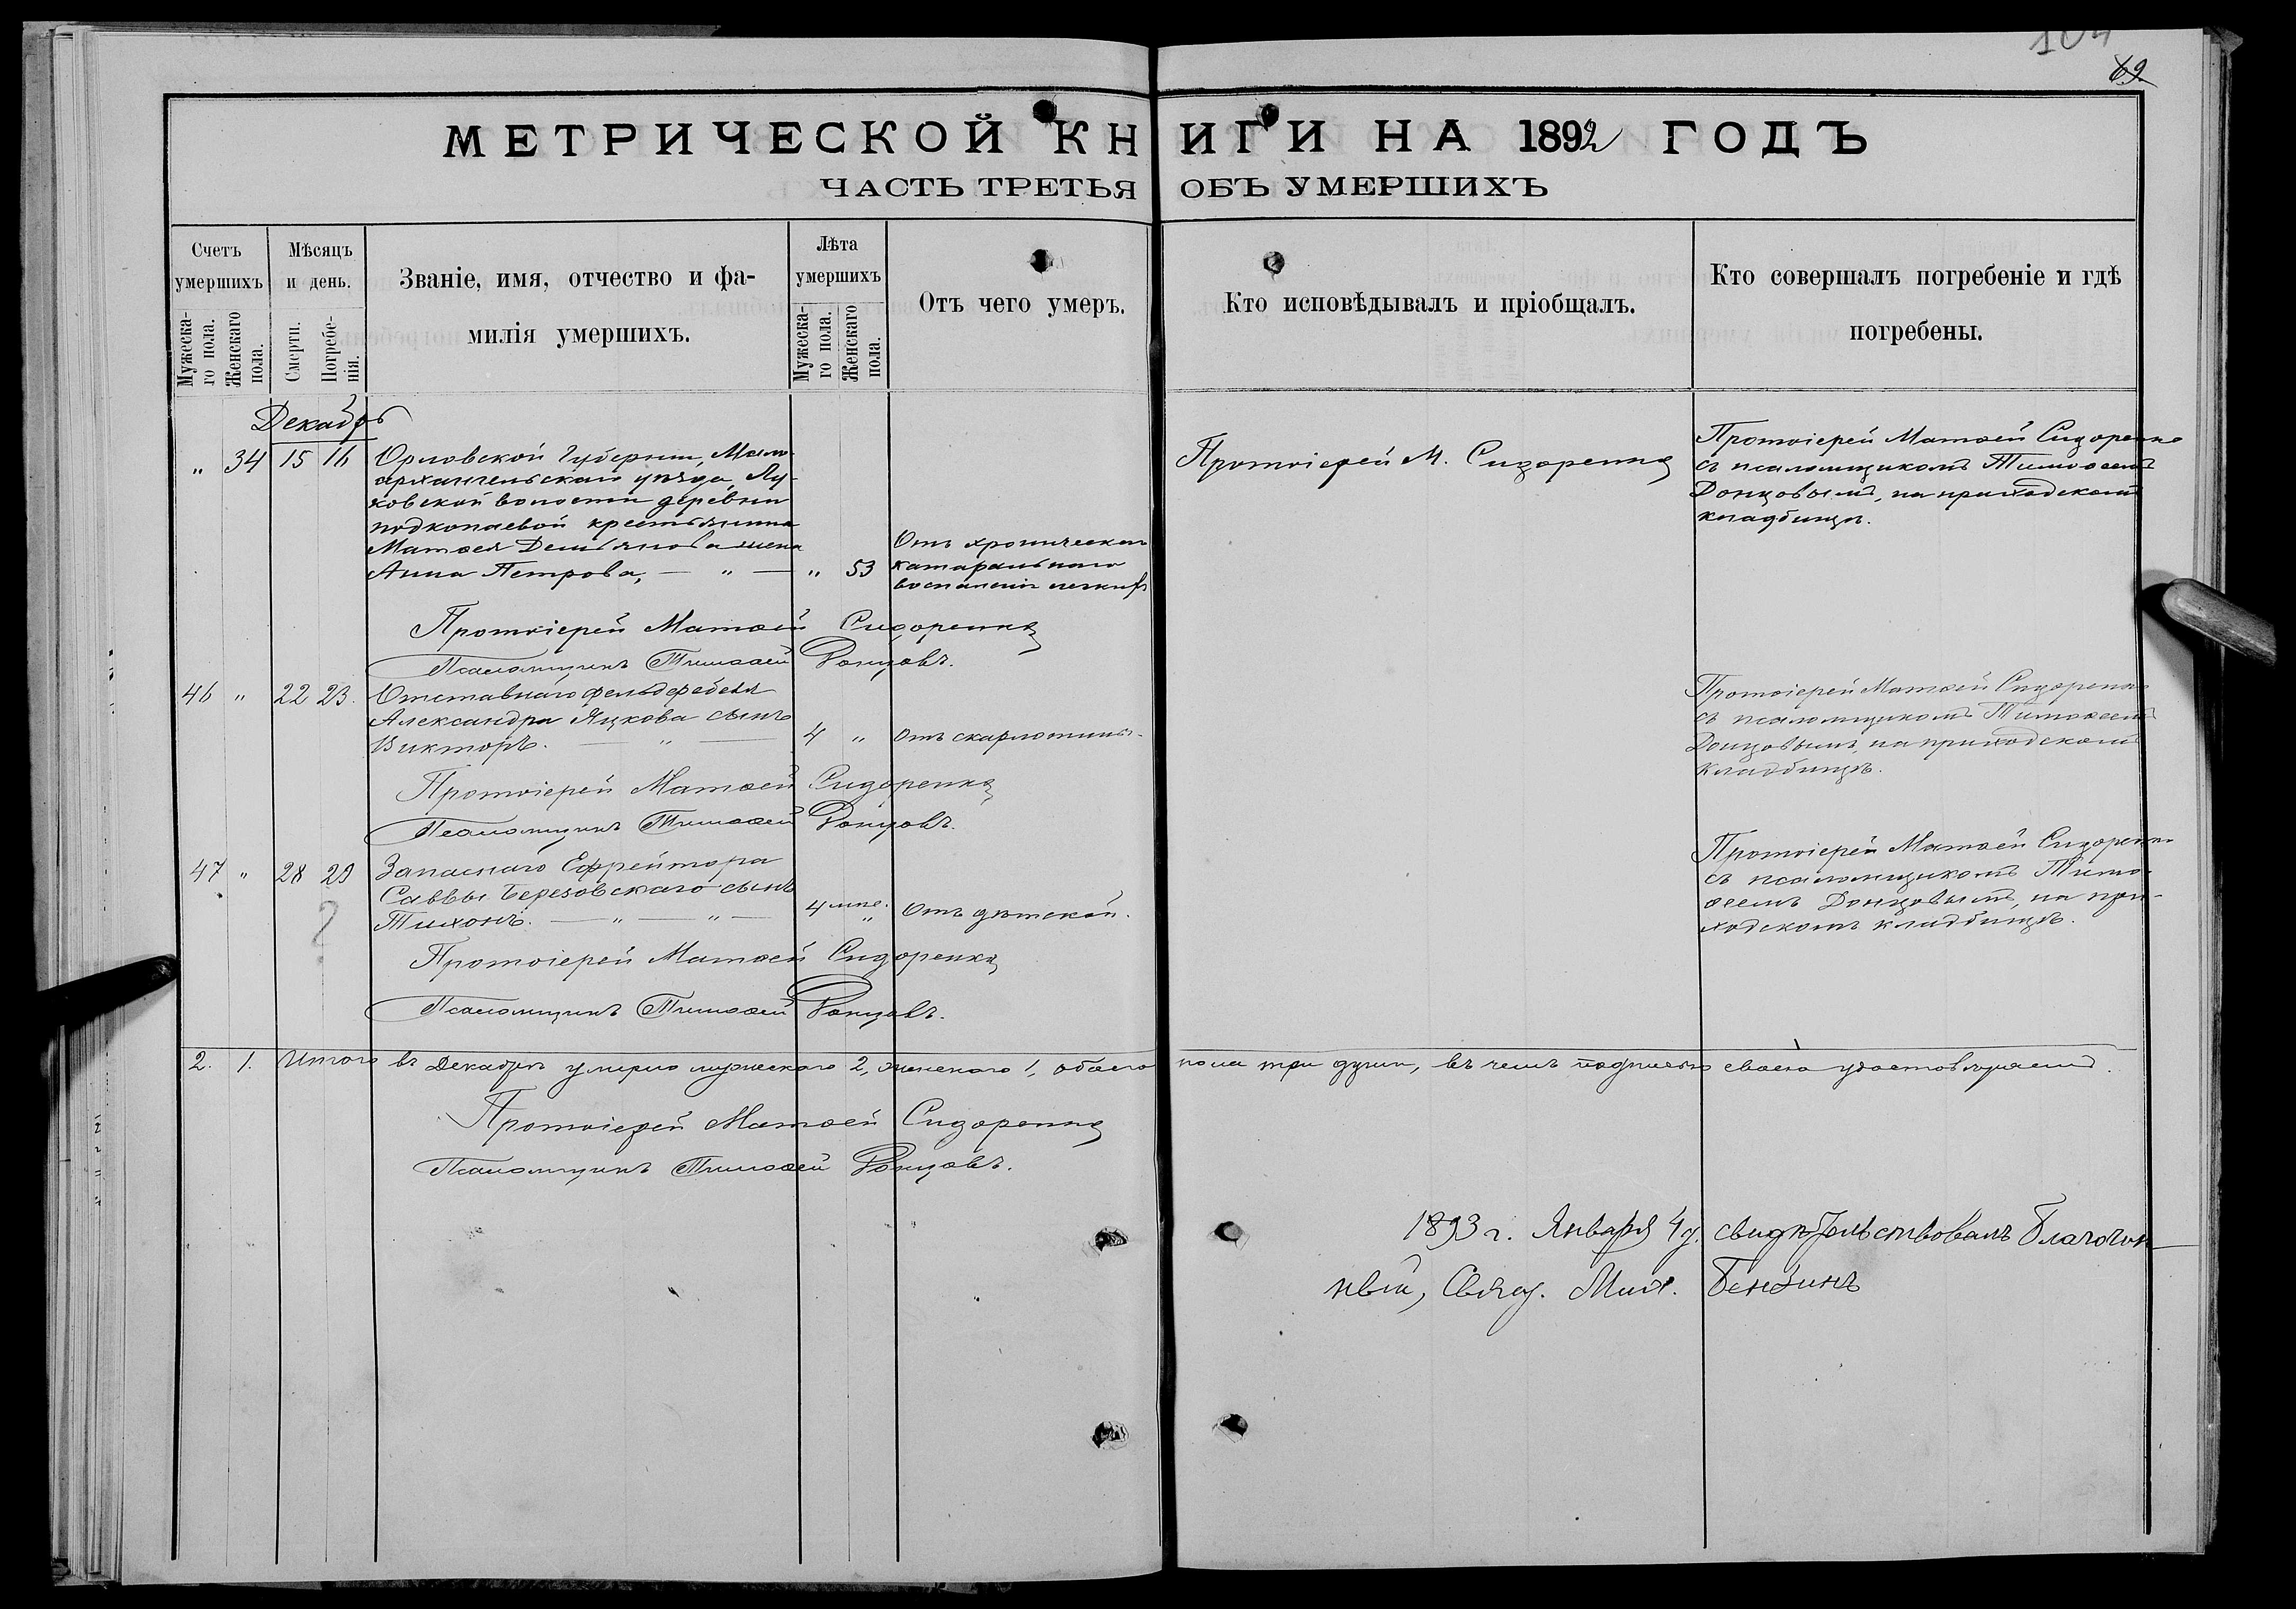 69.
МЕТРИЧЕСКОЙ КНИГИ НА 1892 ГОДЪ
ЧАСТЬ ТРЕТЬЯ ОБЪ УМЕРШИХЪ
Счетъ умершихъ
Мужеска-
го пола.
Женскаго
пола.
Мѣсяцъ
и день.
Смерти.
Погребе-
нія.
Званіе, имя, отчество и фа-
милія умершихъ.
Лѣта
умершихъ
Мужеска-
го пола.
Женскаго
пола.
Отъ чего умеръ.
Кто исповѣдывалъ и пріобщалъ.
Кто совершалъ погребеніе и гдѣ
погребены.
Декабрь
„ 34 15 16
Орловской Губерніи, Мало-
архангельскаго уѣзда, Лу-
ковской волости деревни
подкопаевой крестьянина
Матѳея Демьянова жена
Анна Петрова, — „ —
„ 53
Отъ хроническаго
катаральнаго
воспаленія легкихъ
Протоіерей М. Сидоренко
Протоіерей Матѳей Сидоренко
съ псаломщикомъ Тимоѳеемъ
Донцовымъ, на приходскомъ
кладбищѣ.
Протоіерей Матѳей Сидоренко
Псаломщикъ Тимоѳей Донцовъ.
46 „ 22 23.
Отставнаго фельдфебеля
Александра Яцкова сынъ
Викторъ. — „ —
4 „
Отъ скарлатины.
Протоіерей Матѳей Сидоренко
съ псаломщикомъ Тимоѳеемъ
Донцовымъ, на приходскомъ
кладбищѣ.
Протоіерей Матѳей Сидоренко
Псаломщикъ Тимоѳей Донцовъ.
47 „ 28 29
Запаснаго Ефрейтора
Саввы Березовскаго сынъ
Тихонъ. — „ — „ —
4 мце. „
Отъ дѣтской.
Протоіерей Матѳей Сидоренко
съ псаломщикомъ Тимо-
ѳеемъ Донцовымъ, на при-
ходскомъ кладбищѣ.
?
Протоіерей Матѳей Сидоренко
Псаломщикъ Тимоѳей Донцовъ.
2. 1. Итого въ Декабрѣ умерло мужескаго 2, женскаго 1, обоего пола три души, въ чемъ подписью своею удостовѣряемъ.
Протоіерей Матѳей Сидоренко
Псаломщикъ Тимоѳей Донцовъ.
1893 г. Января 4 д. свидѣтельствовалъ Благочин-
ный, Свящ. Мих.